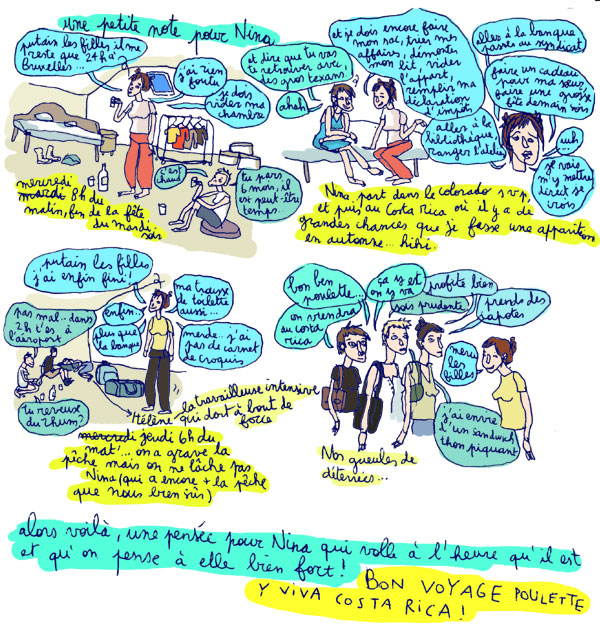 une petite note pour Nina
putain les filles il me
reste que 24h à
bruxelles...
j'ai rien
foutu
je dois
vider ma
chambre
c'est
chaud
tu pars
6 mois, il
est peut-être
temps...
mercredi
mardi 8h du
matin, fin de la fête
du mardi
soir
et dire que tu vas
te retrouver avec
des gros texans.
ahah
et je dois encore faire
mon sac, trier mes
affaires, démonter
mon lit, vider
l'appart,
remplir ma
déclaration
d'impots
aller à la
bibliothèque
ranger l'atelier
aller à la banque
passer au syndicat
faire un cadeau
pour ma sœur
faire une grosse
fête demain soir
euh
je vais
m'y mettre
direct je
crois
Nina, part dans le colorado svp,
et puis au Costa Rica où il y a de
grandes chances que je fasse une apparition
en automne... hihi.
putain les filles
j'ai enfin fini!
enfin..
plus que
la banque
ma trousse
de toilette
aussi...
merde.. j'ai
pas de carnet
de croquis
pas mal.. dans
2h t'es à
l'aéroport
tu ressers
du rhum?
Hélène la travailleuse intensive
qui dort à bout de
force
mercredi jeudi 6h du
mat'... on a grave la
pêche mais on ne lâche pas
Nina (qui a encore + la pêche
que nous bien sûr)
bon ben
poulette...
on viendra
au costa
rica
ça y est
on y va
profite bien
sois prudente
prends des
capotes
merci
les filles
j'ai envie
d'un sandwich
thon piquant
Nos gueules de
déterrées...
alors voilà, une pensée pour Nina qui volle à l'heure qu'il est
et qu'on pense à elle bien fort!
BON VOYAGE POULETTE
Y VIVA
COSTA RICA!